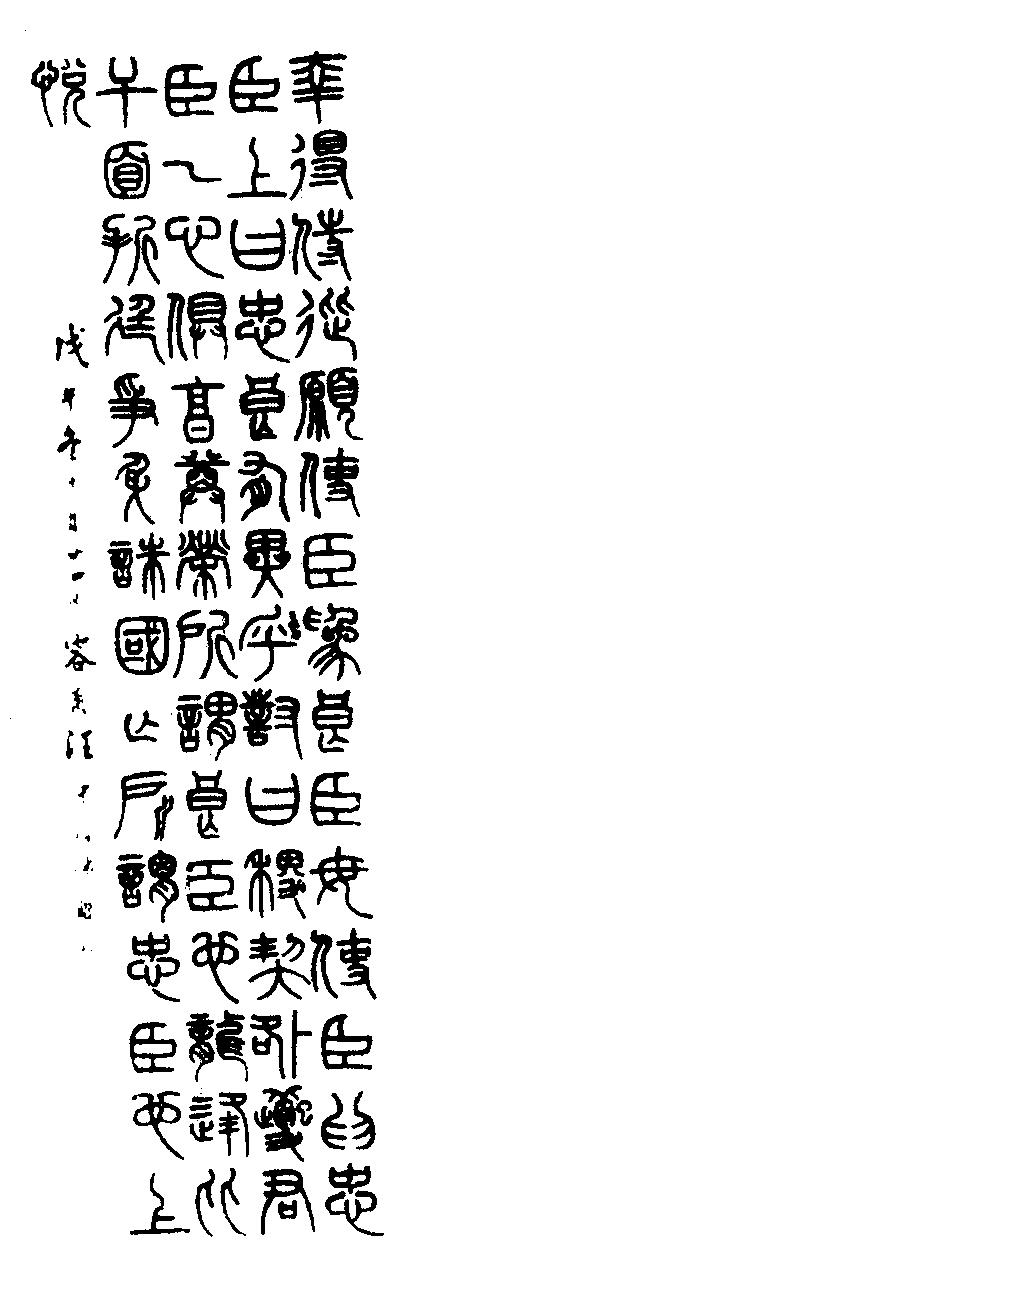 幸得侍從願使臣為良臣毋使臣為忠
臣上曰忠良有異乎對曰稷契咎夔君
臣一心俱享尊榮所謂良臣也龍逄比
干面折廷爭身誅國亡所謂忠臣也上
悅
戊午冬十月廿四